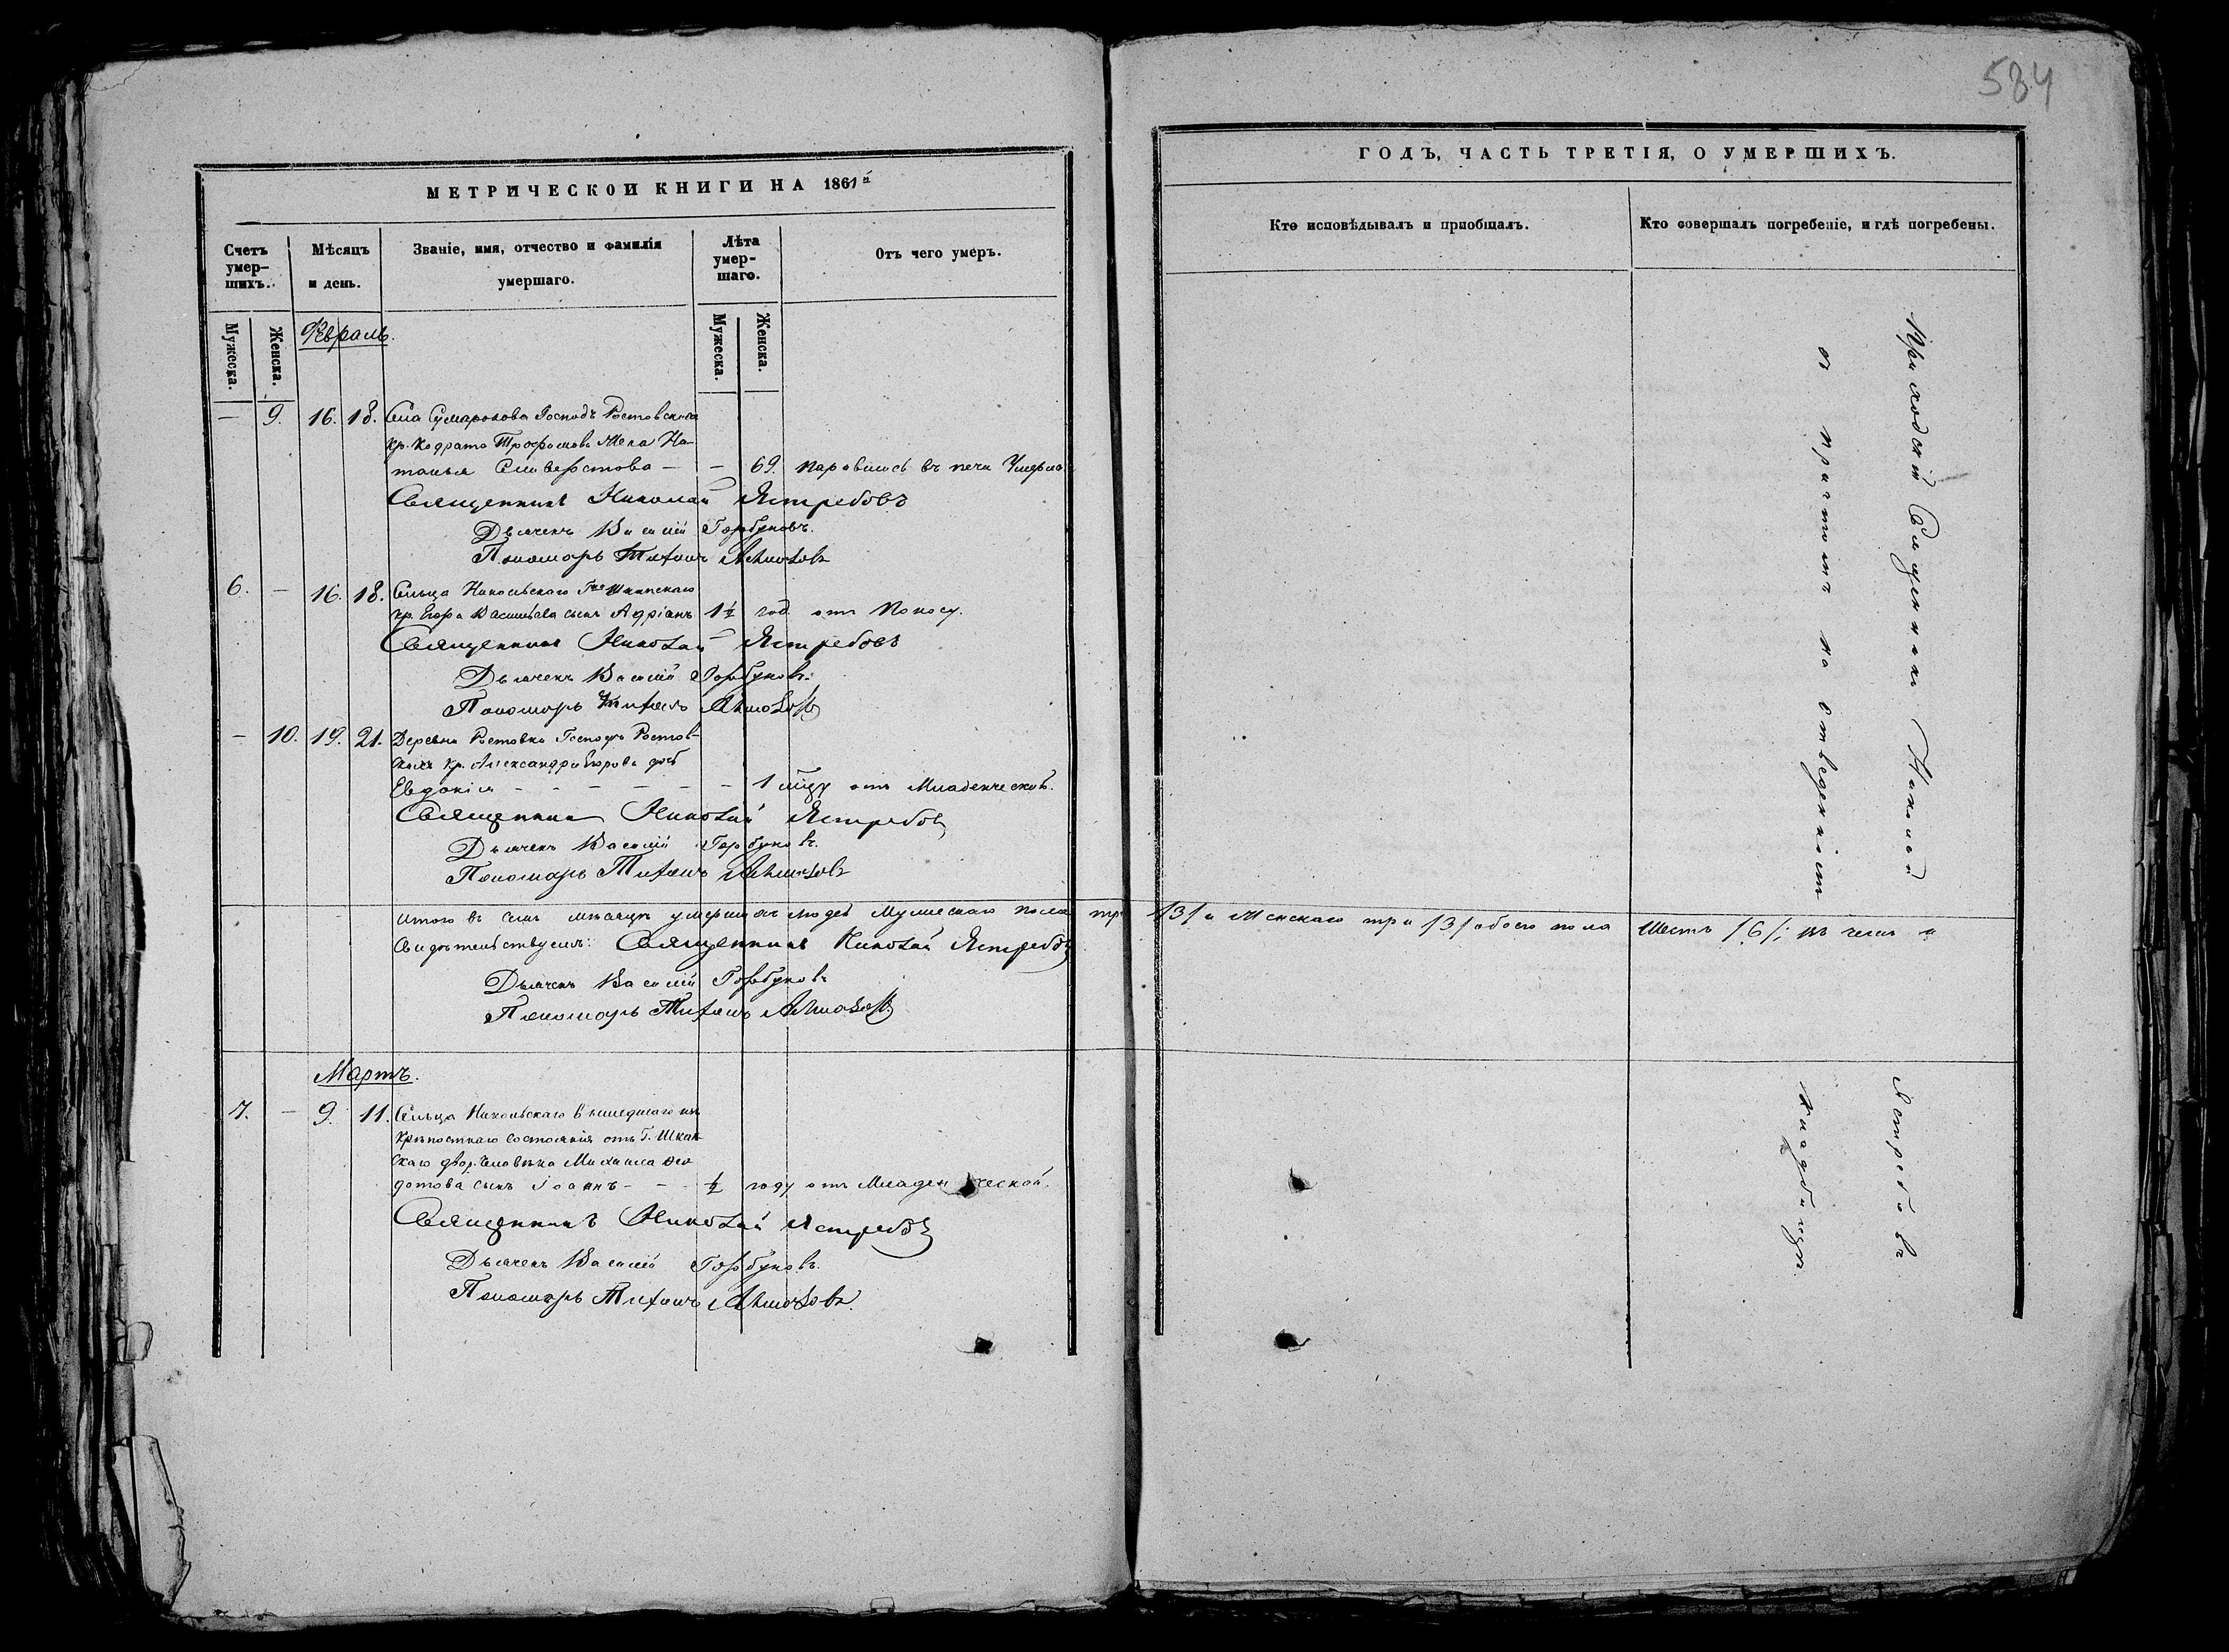 584
МЕТРИЧЕСКОЙ КНИГИ НА 1861й
Счетъ умер-шихъ.
Мѣсяцъ и день.
Званіе, имя, отчество и фамилія умершаго.
Лѣта умер-шаго.
Отъ чего умеръ.
Мужеска.
Женска.
Мужеска.
Женска.
Февраль.
— 9. 16. 18. Села Сумарокова Господъ Ростовскихъ
кр. Кодрата Трофимова жена На-
талья Селиверстова — — 69. паровшись въ печи Умерла
Священникъ Николай Ястребовъ
Дьячекъ Василій Горбуновъ.
Пономарь Тихонъ
6. — 16. 18. Сельца Никольскаго
кр. Егора Васильева сынъ Адріанъ 1½ год. отъ Поносу.
Священникъ Николай Ястребовъ
Дьячекъ Василій Горбуновъ.
Пономарь Тихонъ
— 10. 19. 21. Деревни Ростовки Господъ Ростов-
скихъ кр. Александра Егорова дочь
Евдокія — — — — — — 1 отъ Младенческой.
Священникъ Николай Ястребовъ
Дьячекъ Василій Горбуновъ.
Пономарь Тихонъ
Итого въ семъ мѣсяцѣ умершихъ людей Мужескаго пола три /3/ и Женскаго три /3/ обоего пола Шесть /6/; въ чемъ и
Свидѣтельствуемъ: Священникъ Николай Ястребовъ
Дьячекъ Василій Горбуновъ
Пономарь Тихонъ
Мартъ.
7. — 9. 11. Сельца Никольскаго вышедшаго изъ
крѣпостнаго состоянія отъ Г. Шкап-
скаго двор. человѣка Михаила Ѳео-
дотова сынъ Іоаннъ — — ½ году отъ Младенческой.
Священникъ Николай Ястребовъ
Дьячекъ Василій Горбуновъ.
Пономарь Тихонъ
ГОДЪ, ЧАСТЬ ТРЕТІЯ, О УМЕРШИХЪ.
Кто исповѣдывалъ и пріобщалъ.
Кто совершалъ погребеніе, и гдѣ погребены.
Приходскій Священникъ Николай Ястребовъ
съ причтомъ на отведенномъ кладбищѣ.